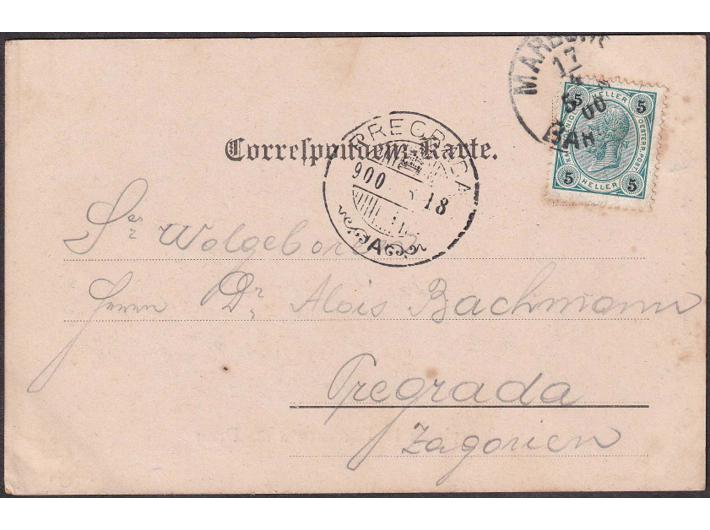 MARBURG
17
5
00
BAH
5 5
HELLER
5 5
HELLER
PREGRADA
900 18
A
Correspondenz-Karte.
Sr Wolgebore
Herrn Dr Alois Bachmann
Pregrada
Zagorien